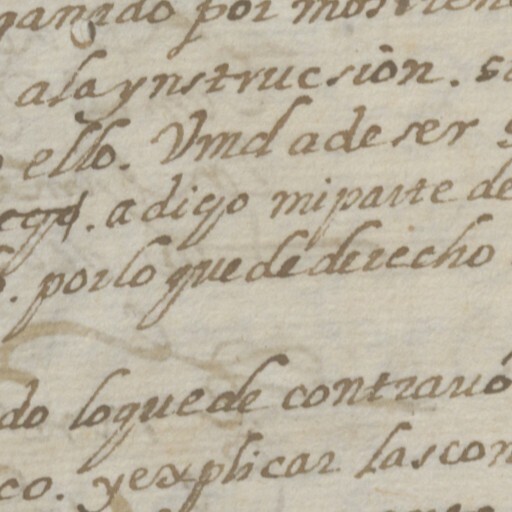 ganado por mostren
a la ynstrucsiòn. s
ello. Vmd a de ser
a digo mi parte de
. por lo que de derecho
do lo que de contrauó
co. y explicar las con